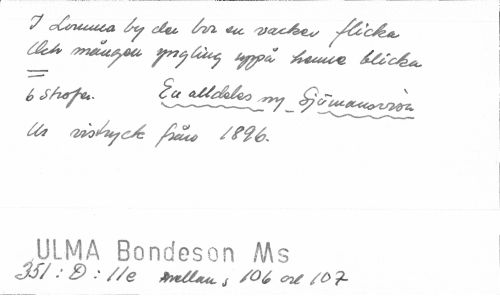 I Lomma by der bor en vacker flicka
Och mången yngling uppå henne blicka
6 strofer. En alldeles ny Sjömansvisa
Ur vistryck från 1896.
ULMA Bondeson Ms
351:D:11e mellan s 106 och 107